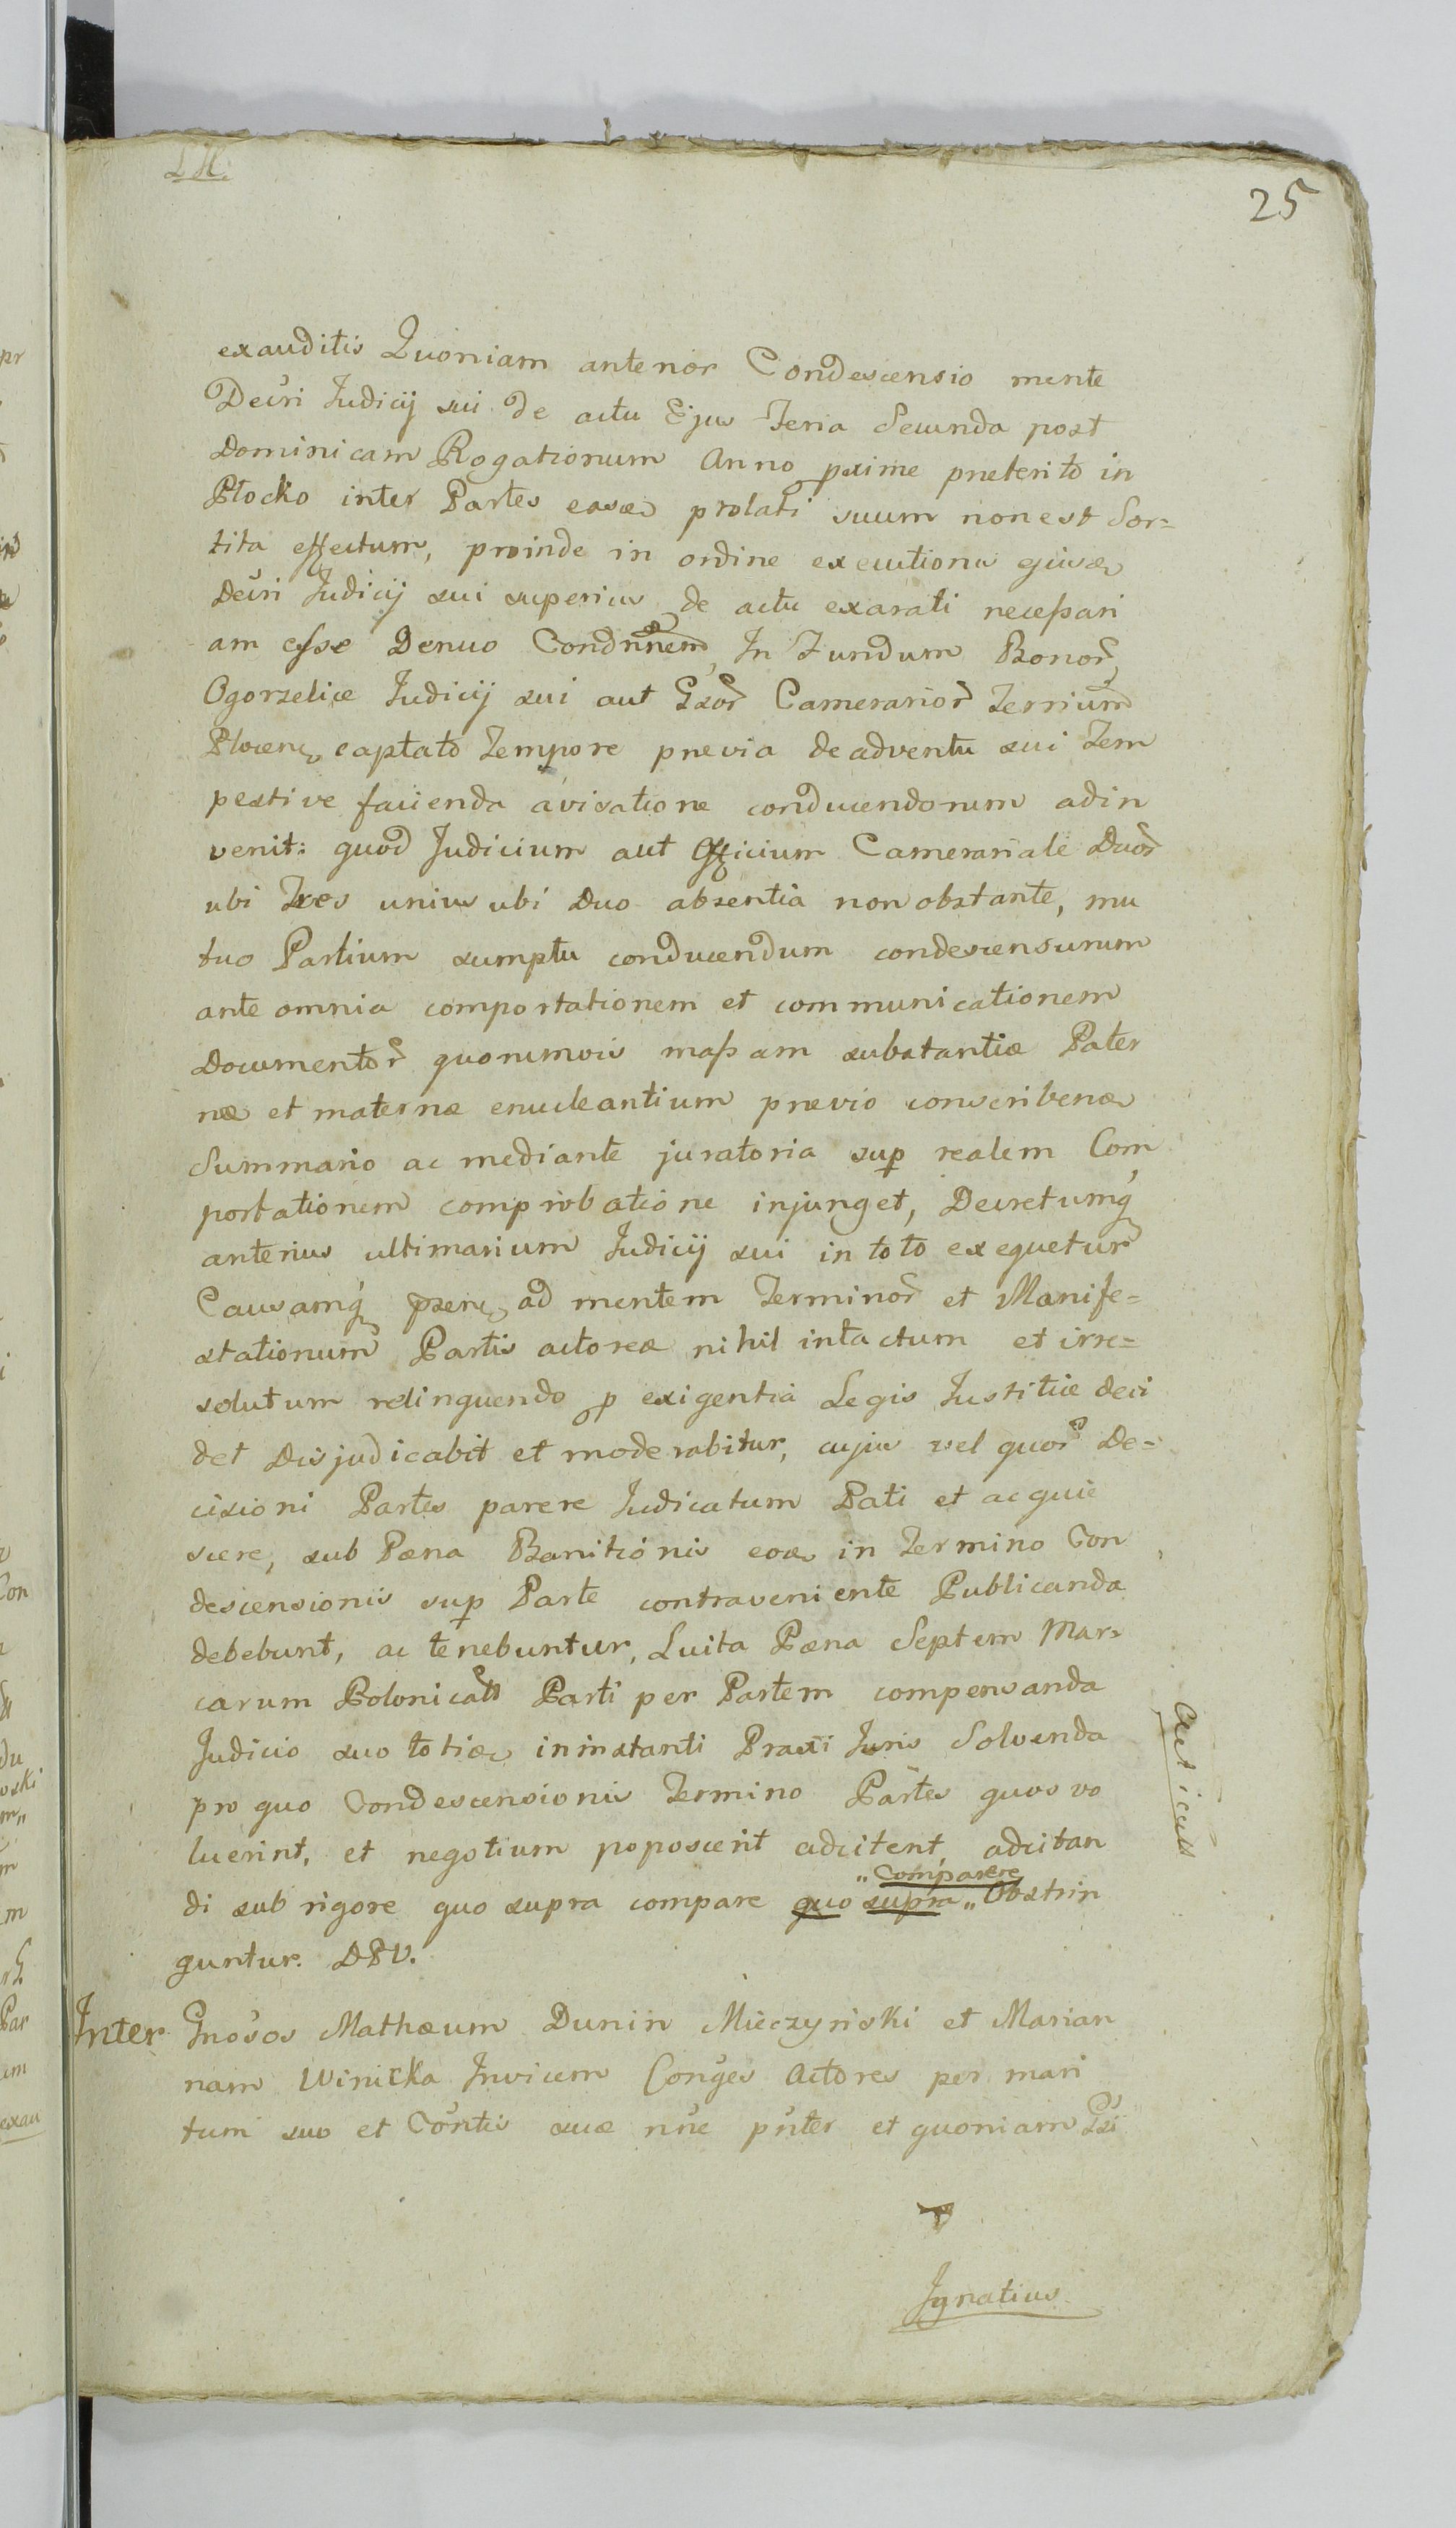 LM.
25
exauditis Quoniam anterior Condescensio mente
Decri Iudicij sui de actu Ejus Feria Secunda post
Dominicam Rogationum Anno pxime preterito in
Płocko inter Partes easd prolati suum non est Sor=
tita effectum, proinde in ordine executionis ejusd
Decri Iudicij sui superius de actu exarati necessari
am esse Denuo Condnnem, In Fundum Bonor
Ogorzelice Iudicij sui aut Gsor Camerarior Terrium
Plocen, captato Tempore previa de adventu sui Tem
pestive facienda avisatione conducendorum adin
venit: quod Judicium aut Officium Camerariale Duor
ubi Tres unius ubi Duo absentia non obstante, mu
tuo Partium sumptu conducendum condescensurum
ante omnia comportationem et communicationem
Documentor quorumvis massam substantiæ Pater
næ et maternæ enucleantium prævio conscribend
Summario ac mediante juratoria sup realem Com
portationem comprobatione injunget, Decretumq
anterius ultimarium Iudicij sui in toto exequetur
Causamq psen, ad mentem Terminor et Manife=
stationum Partis actoreæ nihil intactum et irre=
solutum relinquendo p exigentia Legis Iustitiæ deci
det Disjudicabit et moderabitur, cujus vel quor De=
cisioni Partes parere Iudicatum Pati et acquie
scere, sub Pæna Banitionis eosd in Termino Con
descensionis sup Parte contraveniente Publicanda
debebunt, ac tenebuntur, Luita Pæna Septem Mar=
carum Polonical Parti per Partem compensanda
Judicio suo toties in instanti Praxi Iuris Solvenda
pro quo Condescensionis Termino Partes quos vo
luerint, et negotium poposcerit adcitent, adcitan
„Comparere
di sub rigore quo supra compare quo supra„ Obstrin
guntur. DPV.
Inter Gnosos Mathæum Dunin Mieczyński et Marian
nam Winicka Invicem Conges Actores per mari
tum suo et Contis suæ nne pnter et quoniam Gsi
Ignatius